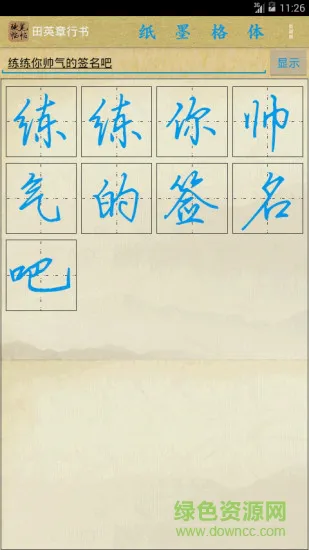 3G 11:26
田英章行书 纸 墨 格 体
练练你帅气的签名吧 显示
练练你帅
气的签名
吧
绿色资源网
www.downcc.com